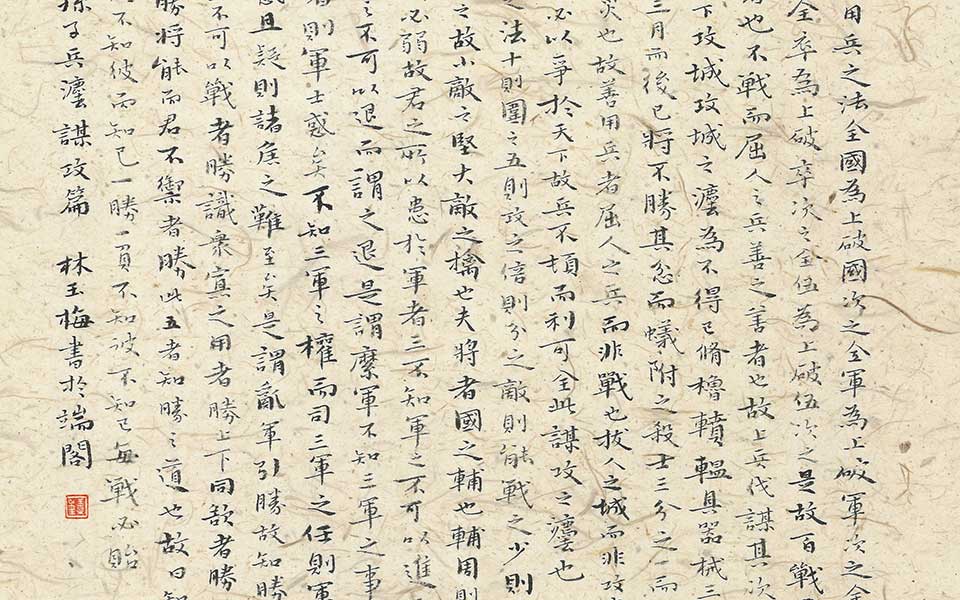 用兵之法全國為上破國次之全軍為上破軍次之全
全卒為上破卒次之全伍為上破伍次之是故百戰
者也不戰而屈人之兵善之善者也故上兵伐謀其次
下攻城攻城之灋為不得已脩櫓轒轀具器械三
三月而後已將不勝其忿而蟻附之殺士三分之一而
災也故善用兵者屈人之兵而非戰也拔人之城而非攻
必以爭於天下故兵不頓而利可全此謀攻之灋也
之法十則圍之五則攻之倍則分之敵則能戰之少則
之故小敵之堅大敵之擒也夫將者國之輔也輔周則
必弱故君之所以患於軍者三不知軍之不可以進
之不可以退而謂之退是謂縻軍不知三軍之事
者則軍士惑矣不知三軍之權而司三軍之任則軍
惑且疑則諸矦之難至矣是謂亂軍引勝故知勝
不可以戰者勝識眾寡之用者勝上下同欲者勝
勝將能而君不禦者勝此五者知勝之道也故曰知
不知彼而知己一勝一負不知彼不知己每戰必殆
孫子兵灋謀攻篇 林玉梅書於端閣